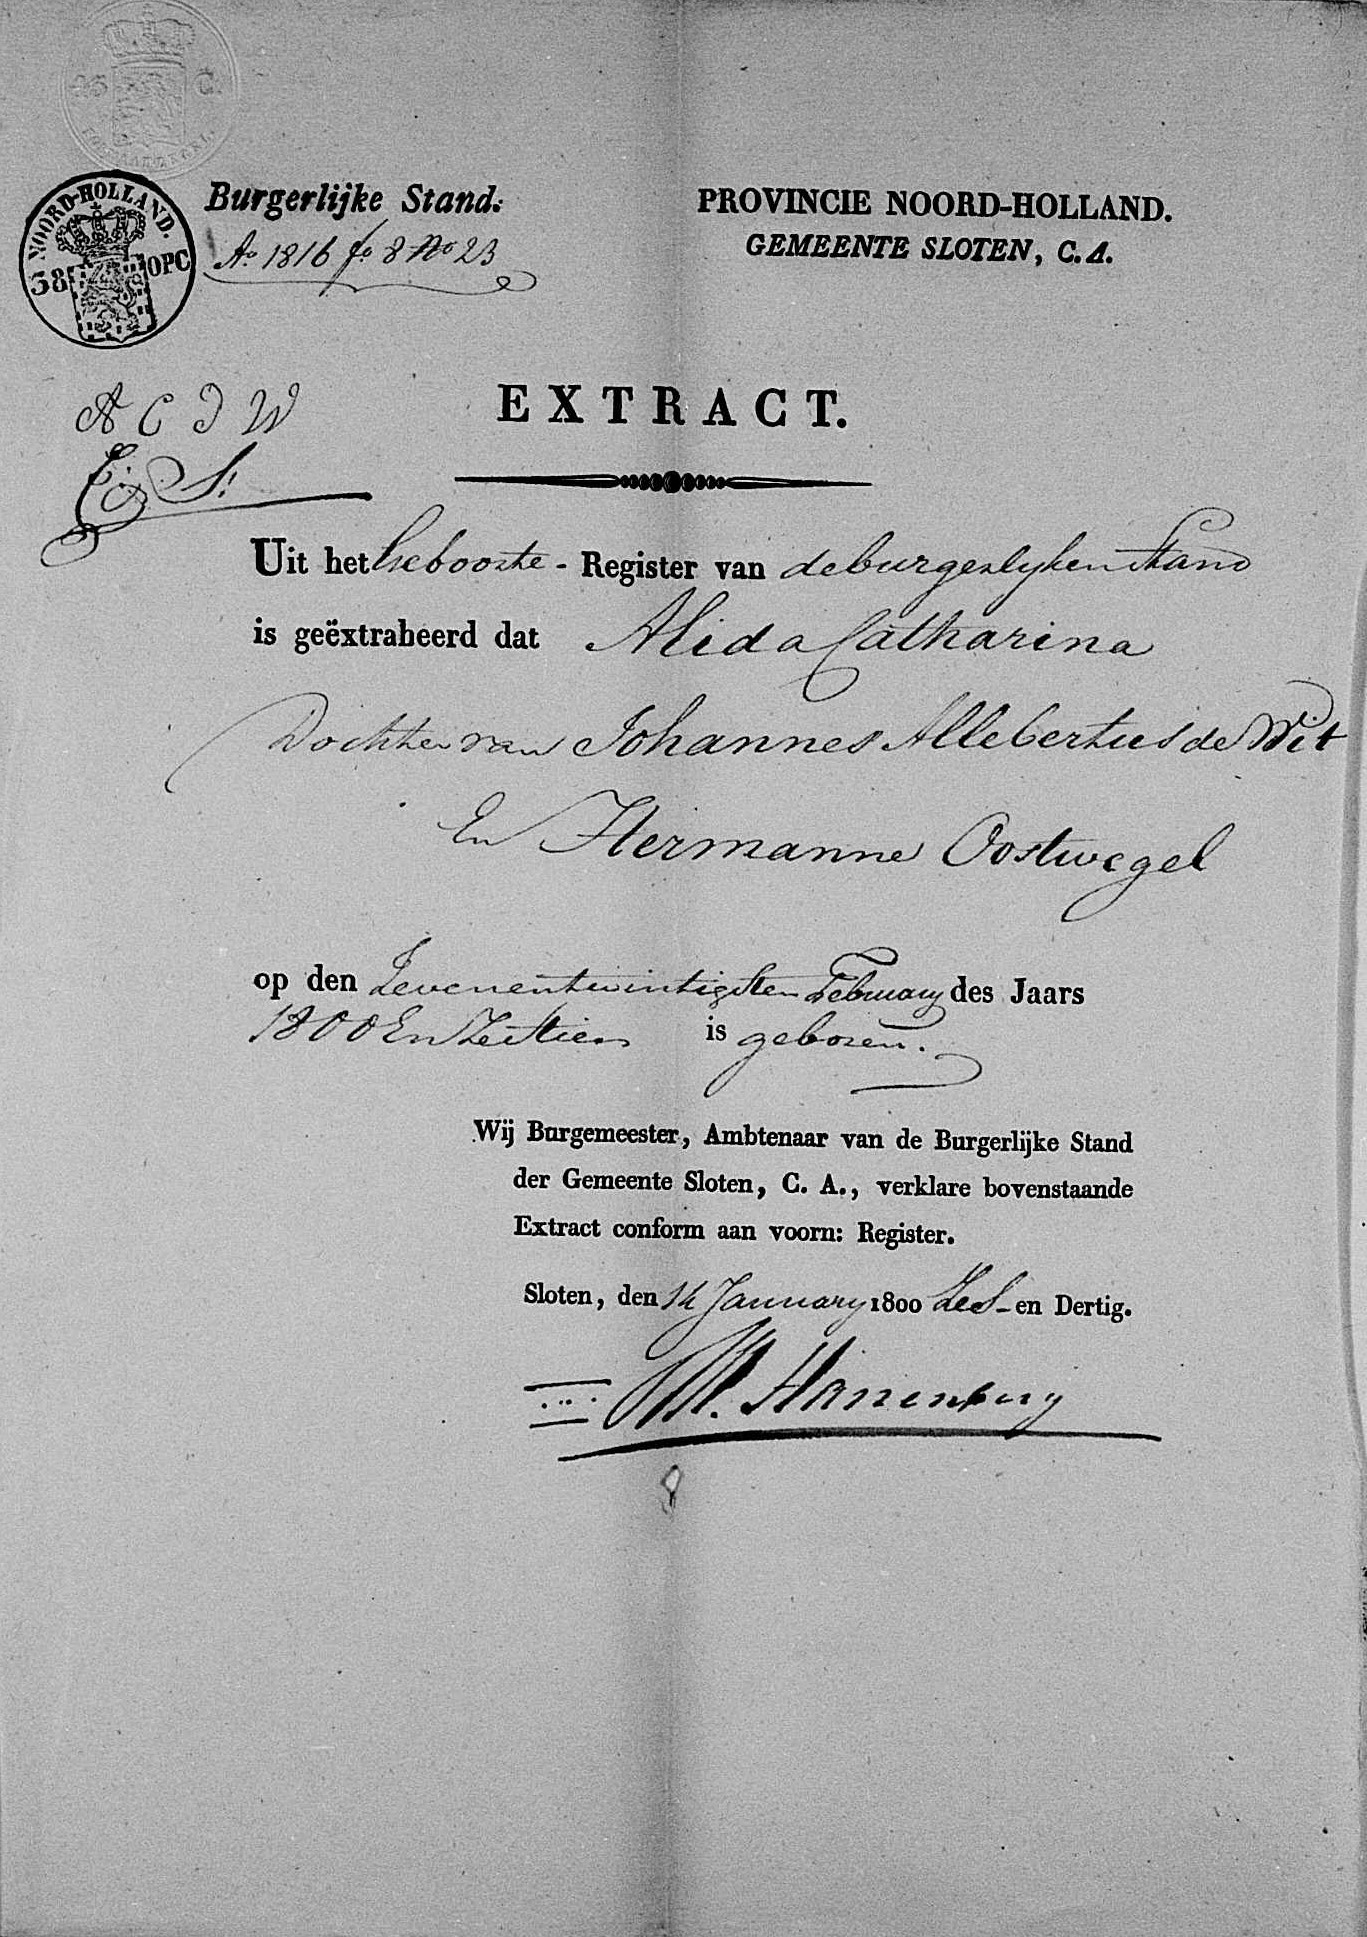 45 C.
KLEIN ZEGEL
NOORD-HOLLAND.
38 OPC
Burgerlijke Stand.
Ao 1816 fo 8 No 23
PROVINCIE NOORD-HOLLAND.
GEMEENTE SLOTEN, C. A.
A C D W
E: S:
EXTRACT.
Uit het Geboorte - Register van de burgerlyken Stand
is geëxtraheerd dat Alida Catharina
Dochter van Johannes Allebertus de Wit
En Hermanne Oostwegel
op den Zevenentwintigsten February des Jaars
1800 En Zestien is geboren.
Wij Burgemeester, Ambtenaar van de Burgerlijke Stand
der Gemeente Sloten, C. A., verklare bovenstaande
Extract conform aan voorn: Register.
Sloten, den 14 January 1800 Zes - en Dertig.
Hanenburg